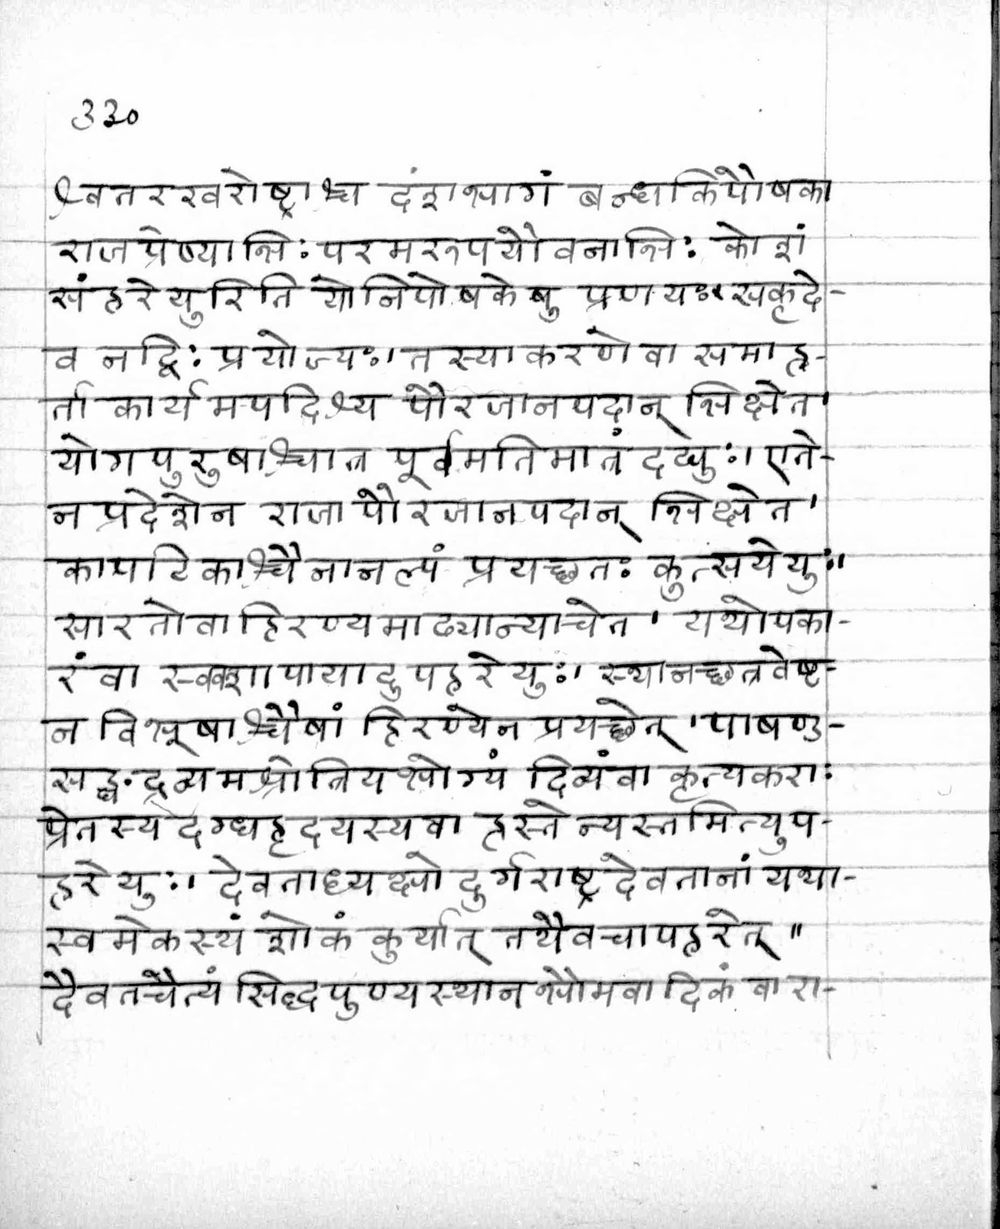 ३३०
श्वतरखरोष्ट्राश्च दंशभागं बन्धकिपौषका
राजप्रेष्याभिः परमरूपयौवनाभिः कोशं
संहरेयुरिति योनिपोषकेषु प्रणयः। सकृदे-
व नद्विः प्रयोज्यः। तस्याकरणे वा समाह-
र्ता कार्यमपदिश्य पौरजानपदान् भिक्षेत।
योगपुरुषाश्चात्र पूर्वमतिमात्रं दद्युः। एते-
न प्रदेशेन राजा पौरजानपदान् भिक्षेत।
कापटिकाश्चैनानल्पं प्रयच्छतः कुत्सयेयुः।
सारतो वा हिरण्यमाढ्यान्याचेत। यथोपका-
रं वा स्ववशा पायादुपहरेयुः। स्थानच्छत्रवेष्ट-
न विभूषाश्चैषां हिरण्येन प्रयच्छेत्। पाषण्ड-
सङ्घद्रव्यमश्रोत्रियभोग्यं दिव्यंवा कृत्यकराः
प्रेतस्य दग्धहृदयस्य वा हस्ते न्यस्तमित्युप-
हरेयुः। देवताध्यक्षो दुर्गराष्ट्रदेवतानां यथा-
स्वमेकस्थं शोकं कुर्यात् तथैव चापहरेत्॥
दैवतचैत्यं सिद्धपुण्यस्थानभौमवादिकं वा रा-